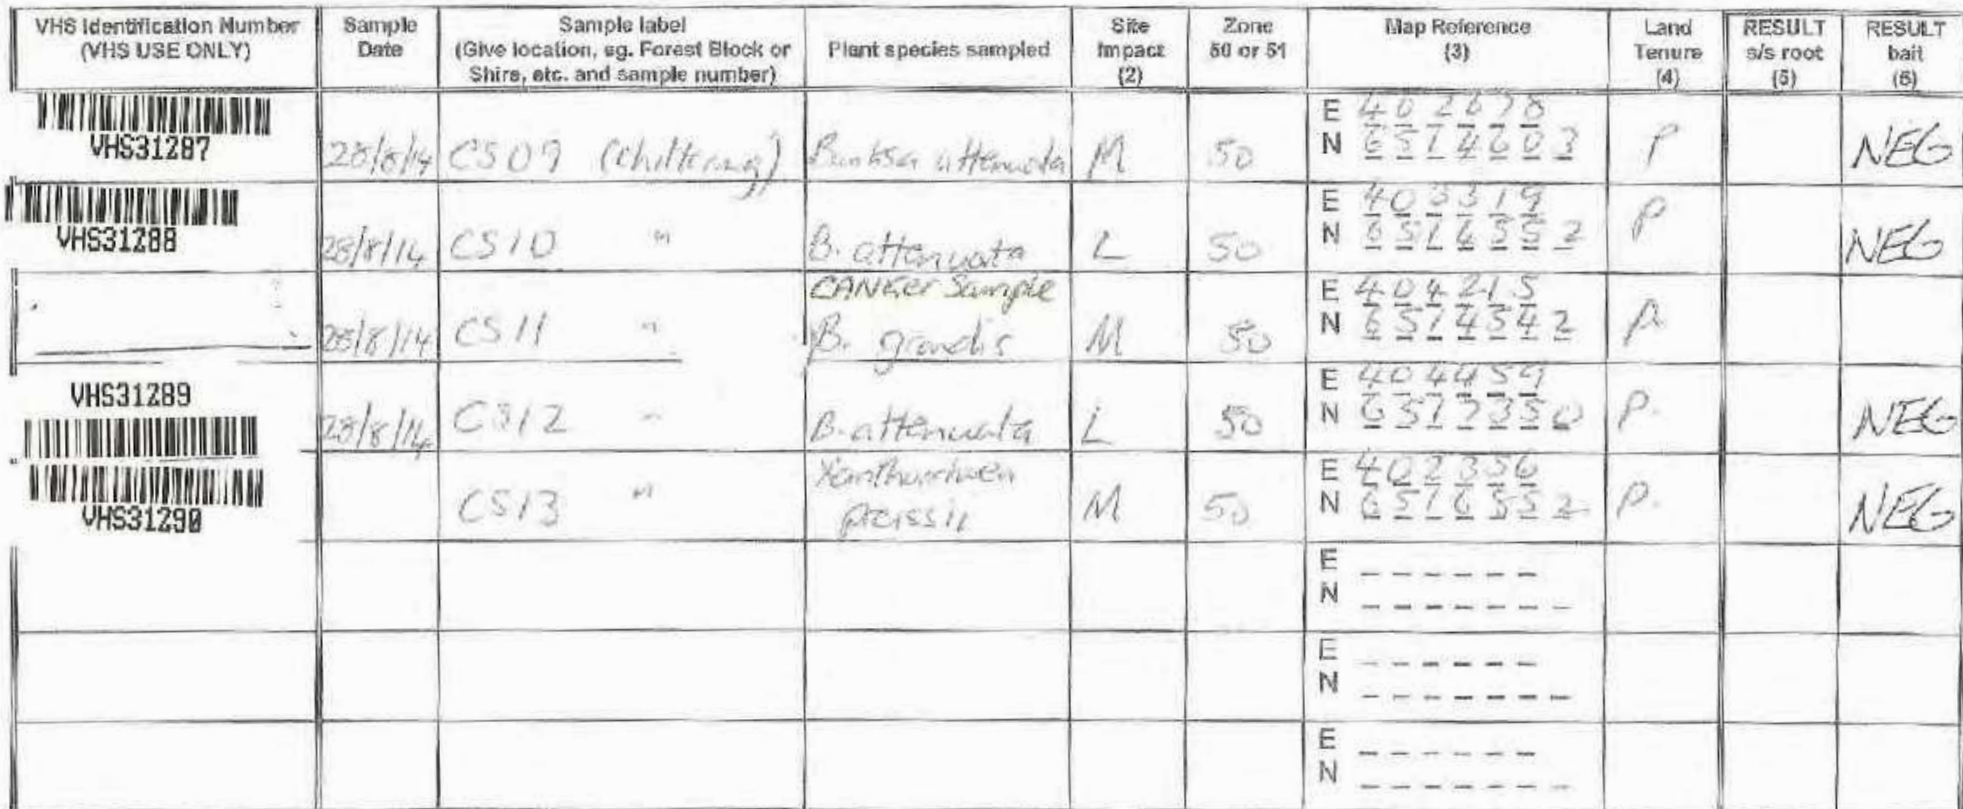 VHS Identification Number (VHS USE ONLY) Sample Date Sample label (Give location, eg. Forest Block or Shire, etc. and sample number) Plant species sampled Site Impact (2) Zone 50 or 51 Map Reference (3) Land Tenure (4) RESULT s/s root (5) RESULT bait (6)
VHS31287 28/8/14 CS09 (Chittering) Banksia attenuata M 50 E 402678 P NEG
N 6514603
VHS31288 28/8/14 CS10 " B. attenuata L 50 E 403319 P NEG
N 6516552
CANKER Sample
28/8/14 CS11 " B. grandis M 50 E 404215 P.
N 6514542
VHS31289 28/8/14 CS12 " B. attenuata L 50 E 404459 P. NEG
N 6517350
VHS31290 CS13 " preissii M 50 E 402356 P. NEG
N 6516552
E
N
E
N
E
N